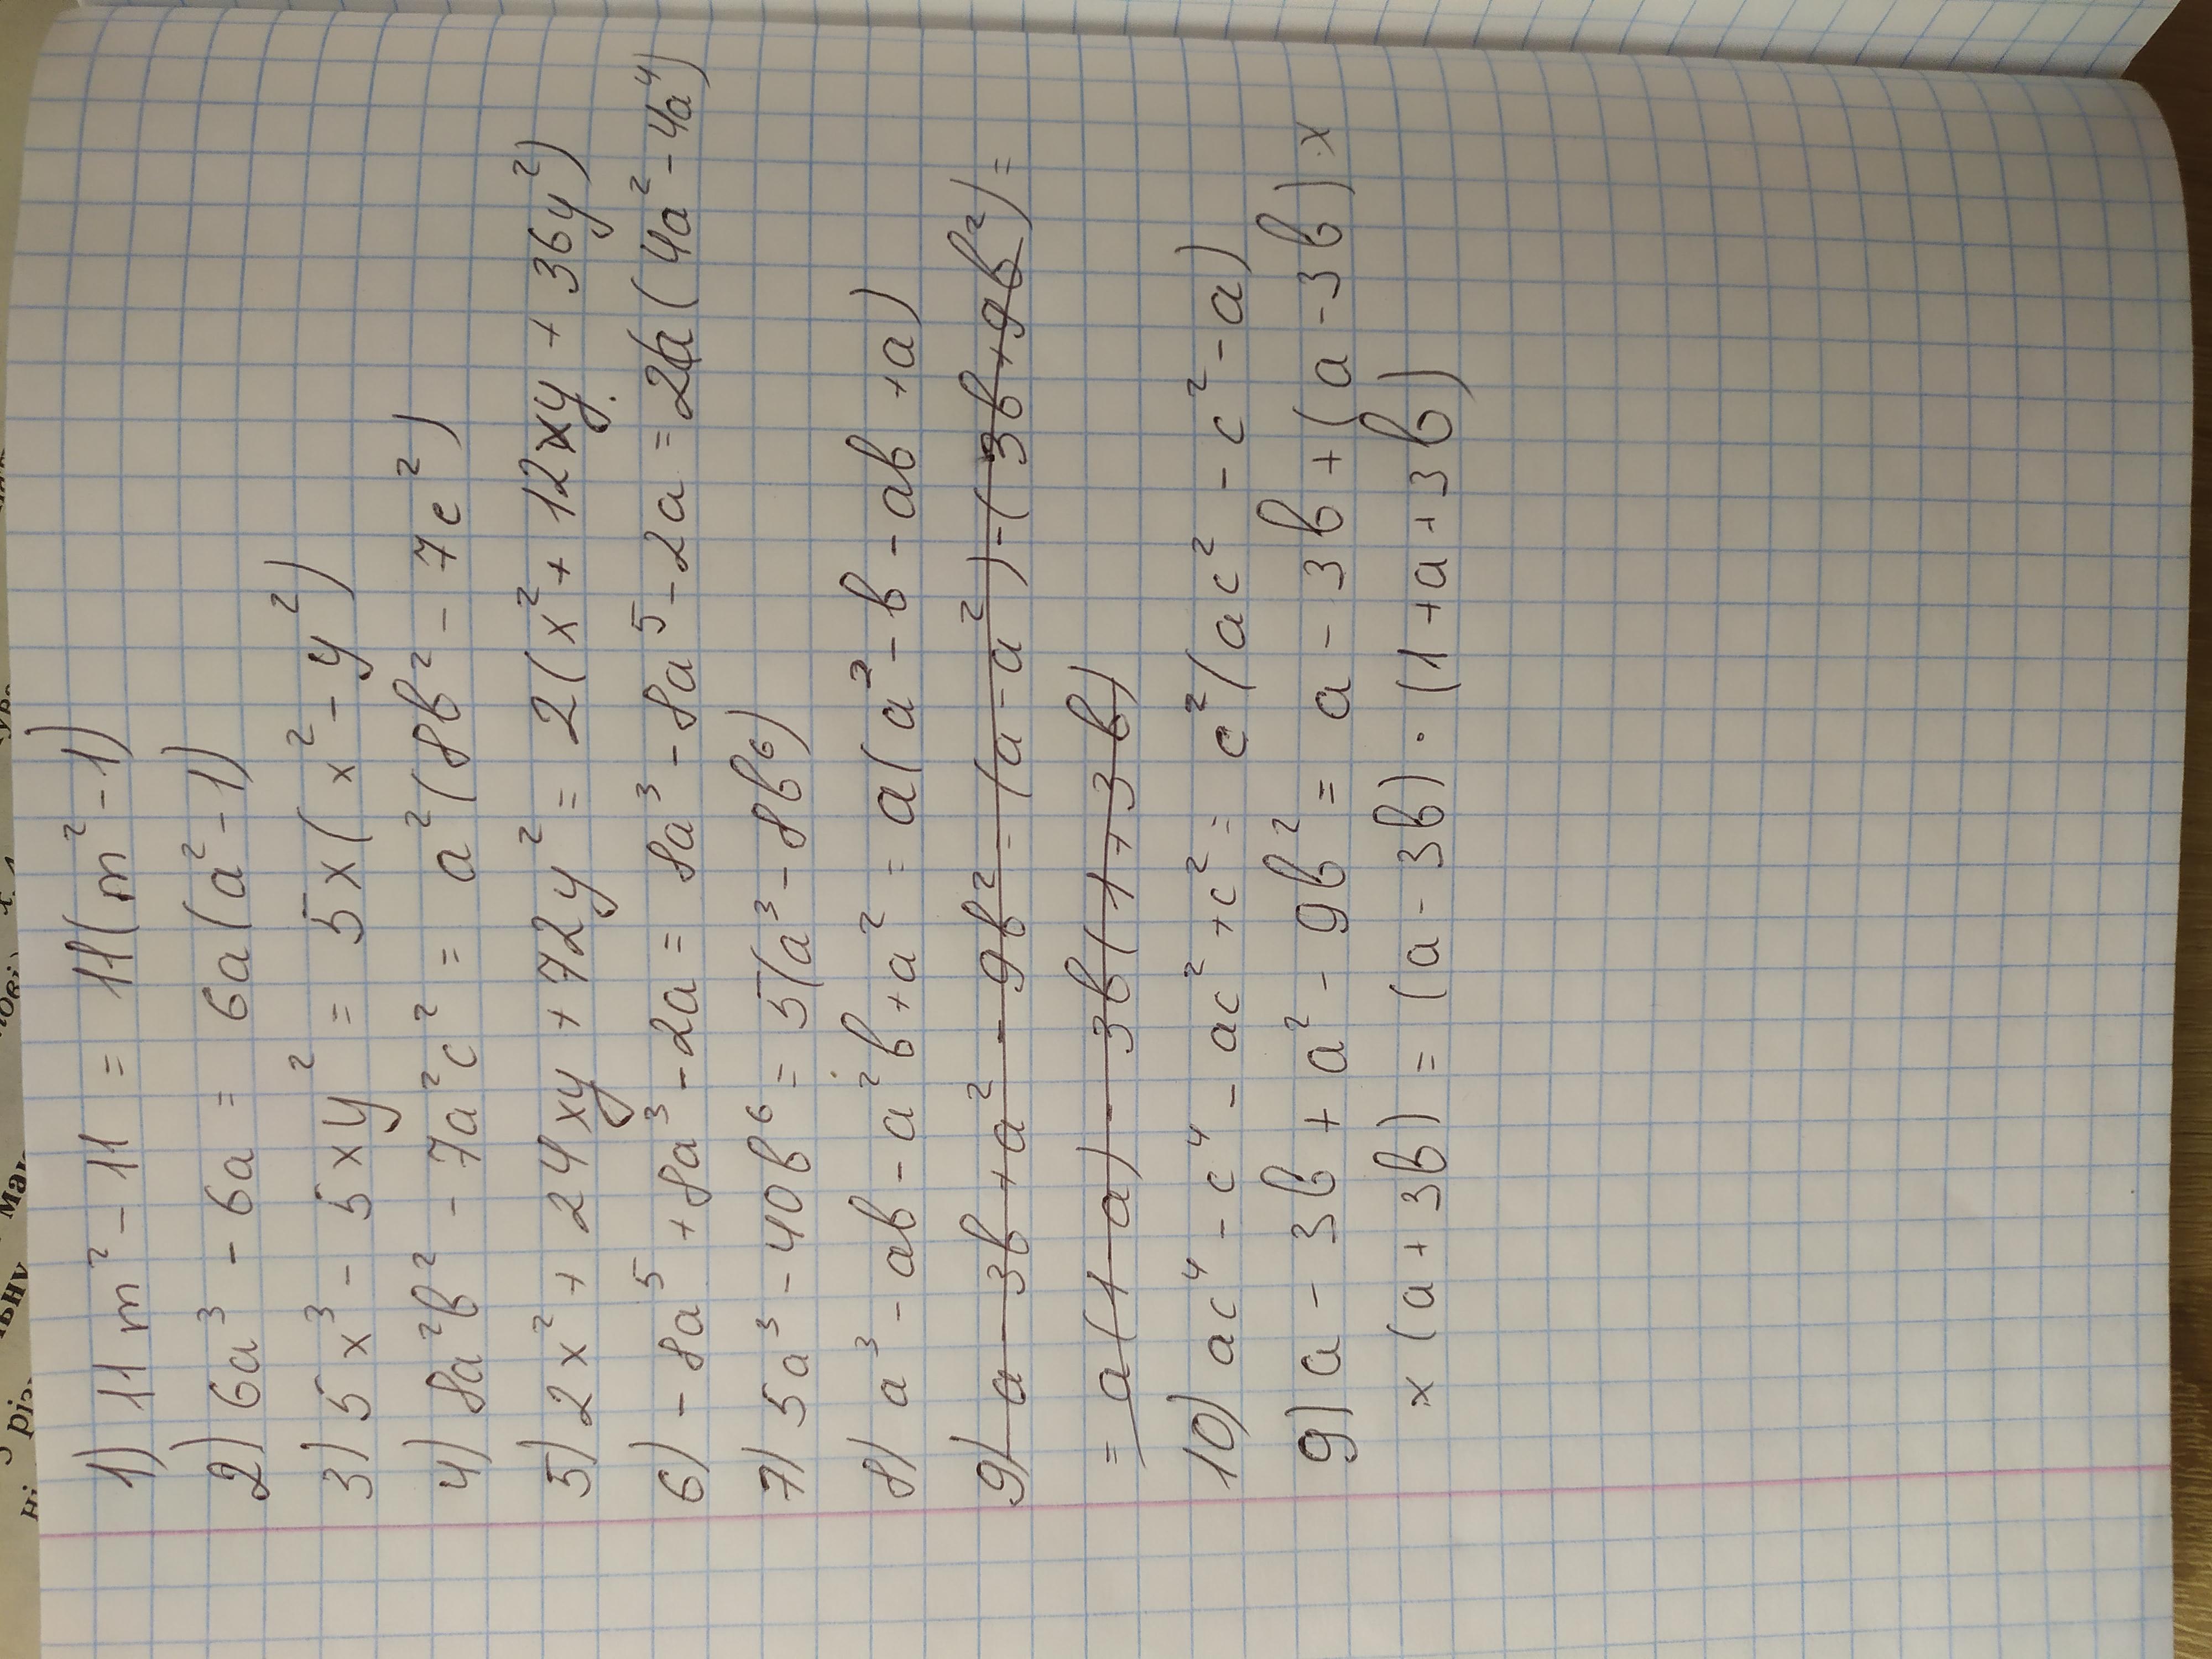 1) 11m² - 11 = 11(m² - 1)
2) 6a³ - 6a = 6a(a² - 1)
3) 5x³ - 5xy² = 5x(x² - y²)
4) 8a²b² - 7a²c² = a²(8b² - 7c²)
5) 2x² + 24xy + 72y² = 2(x² + 12xy + 36y²)
6) - 8a⁵ + 8a³ - 2a = 8a³ - 8a⁵ - 2a = 2a(4a² - 4a⁴)
7) 5a³ - 40b⁶ = 5(a³ - 8b⁶)
8) a³ - ab - a²b + a² = a(a² - b - ab + a)
9) a - 3b + a² - 9b² = (a - a²) - (3b + 9b²) =
= a(1 - a) - 3b(1 + 3b)
10) ac⁴ - c⁴ - ac² + c² = c²(ac² - c² - a)
9) a - 3b + a² - 9b² = a - 3b + (a - 3b) x
x (a + 3b) = (a - 3b) · (1 + a + 3b)